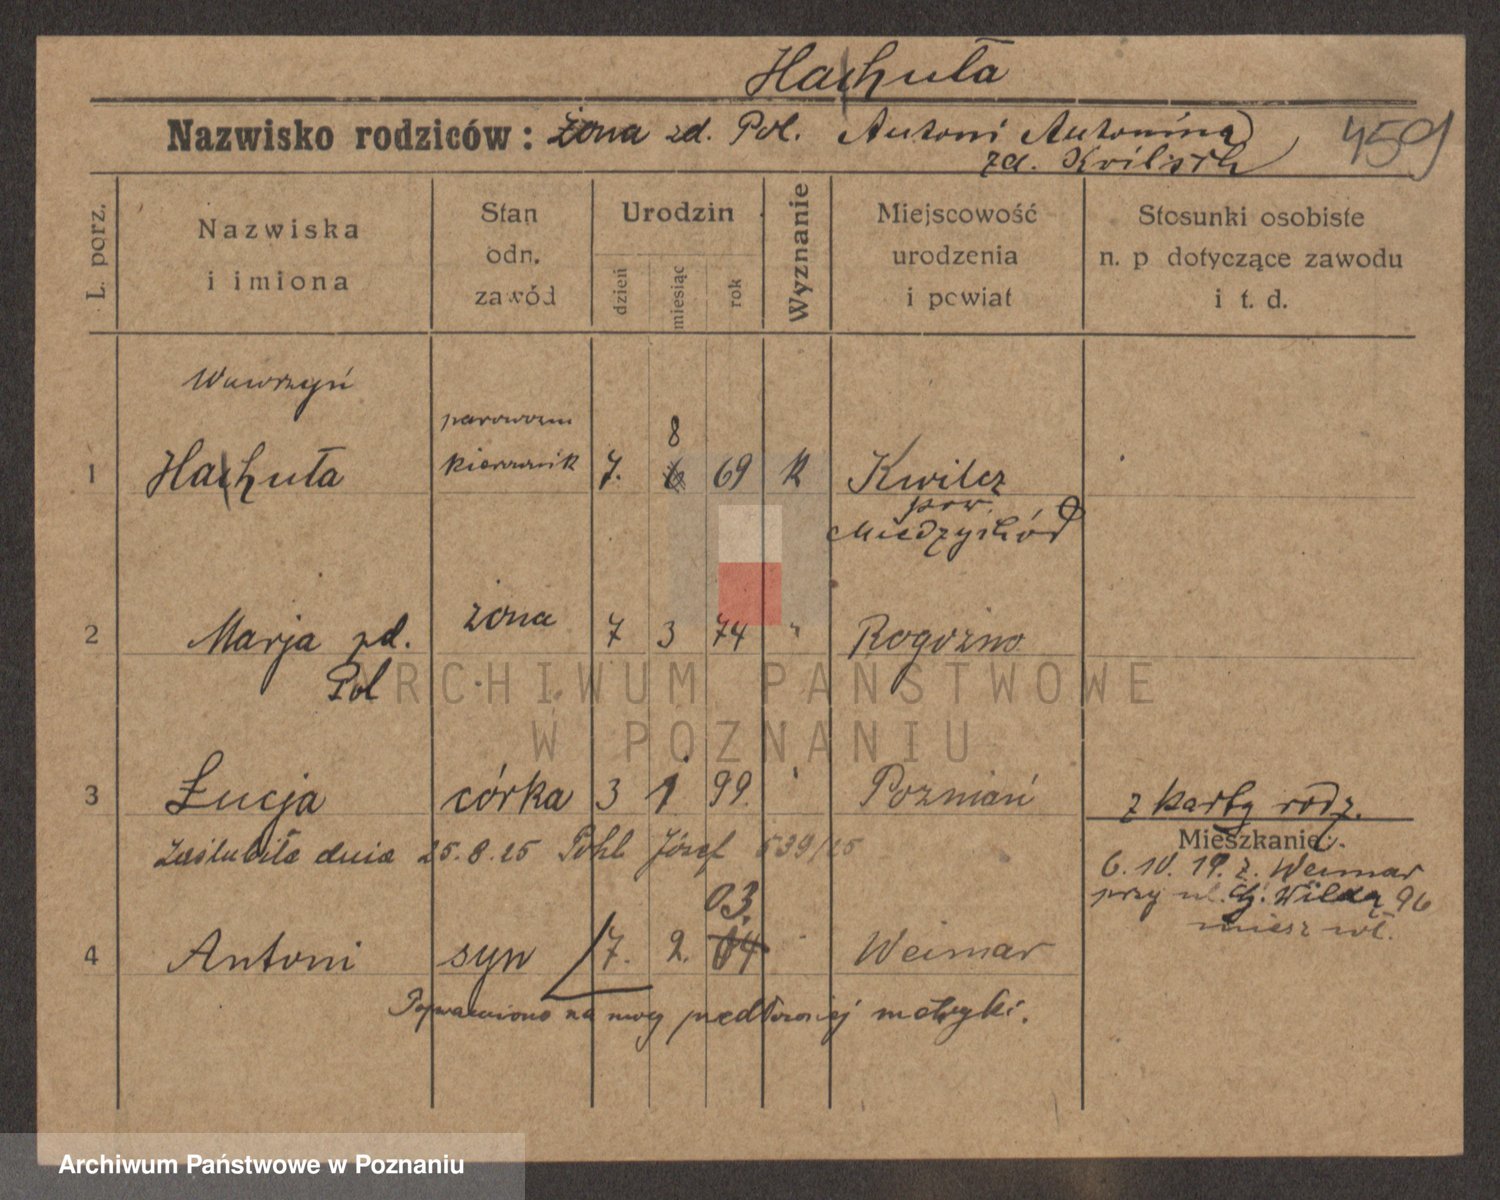 Hachuła
Nazwisko rodziców: żona zd. Pol. Antoni Antonina
zd. Kvilisch
459
L. porz.
Nazwiska
i imiona
Stan
odn.
zawód
Urodzin
dzień
miesiąc
rok
Wyznanie
Miejscowość
urodzenia
i powiat
Stosunki osobiste
n. p dotyczące zawodu
i t. d.
Wawrzyń
parowozu 8
1 Hachuła kierownik 7. 6 69 k Kwilcz
pow.
Międzychód
2 Marja zd. żona 7 3 74 " Rogoźno
Pol
ARCHIWUM PAŃSTWOWE
W POZNANIU
3 Łucja córka 3 1 99 " Poznań z karty rodz.
Zaślubiła dnia 25.8.25 Pohl Józef 539/25
Mieszkanie:
6. 10. 19. z. Weimar
przy ul. Wilda 96
03.
4 Antoni syn 7. 2. 04 Weimar
Poprawiono na mocy przedłożonej metryki.
Archiwum Państwowe w Poznaniu